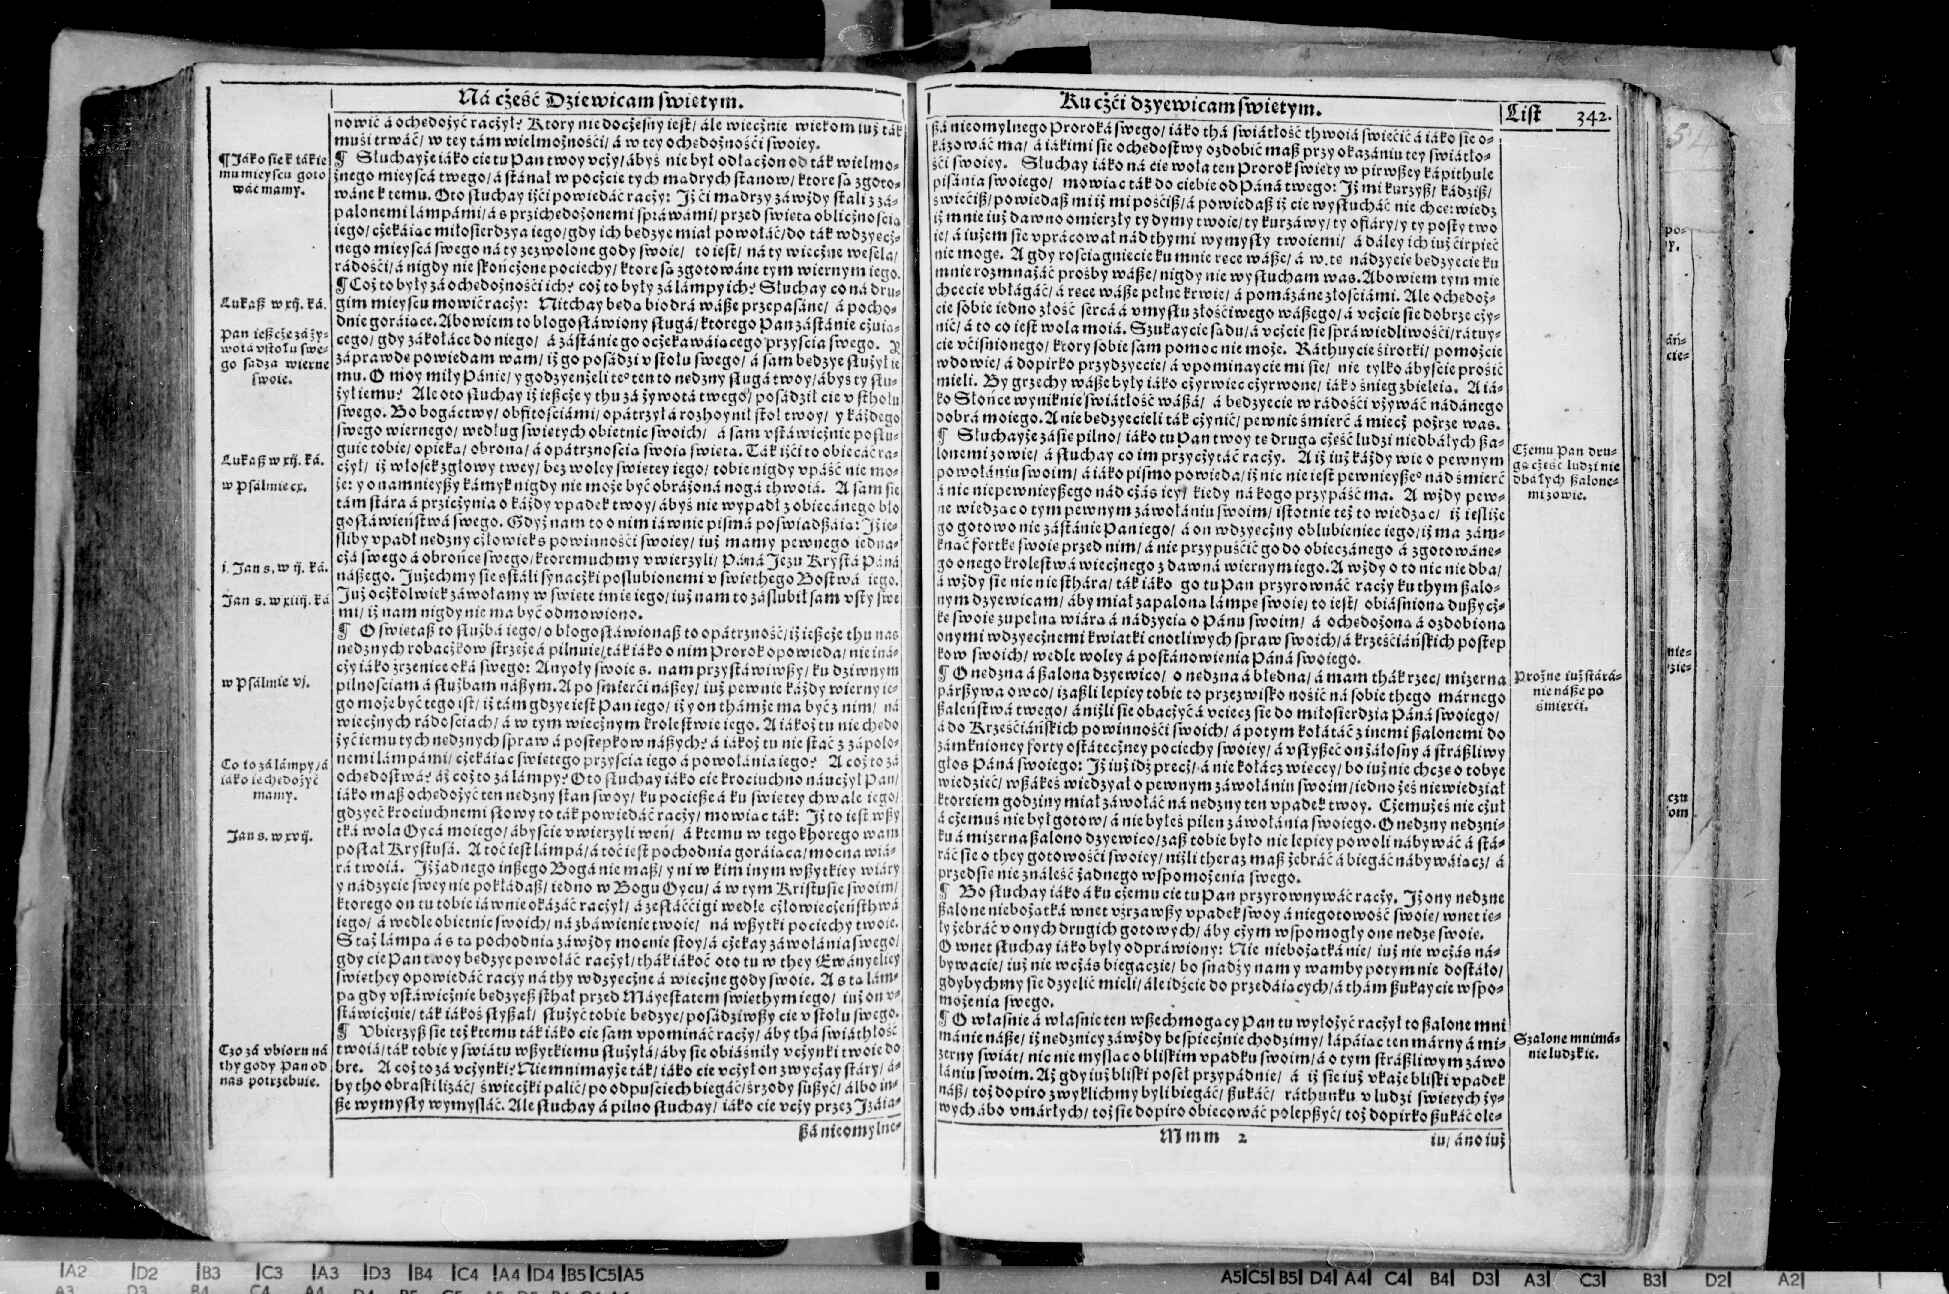 Ná cżęść Dziewicam swiętym.
nowić á ochędożyć racżył? Ktory nie docżesny iest/ ále wiecżnie wiekom iuż ták
muśi trwáć/ w tey tám wielmożnośći/ á w tey ochędożnośći swoiey.
¶ Słuchayże iáko cię tu Pan twoy vcży/ ábyś nie był odłącżon od ták wielmo-
żnego mieyscá twego/ á stánął w pocżcie tych mądrych stanow/ ktore są zgoto-
wáne k temu. Oto słuchay iżći powiedáć racży: Iż ći mądrzy záwżdy stali z zá-
palonemi lámpámi/ á s przichędożonemi spráwámi/ przed swięta oblicżnością
iego/ cżekáiąc miłosierdzya iego/ gdy ich będzye miał powołáć/ do ták wdzyęcż-
nego mieyscá swego ná ty zezwolone gody swoie/ to iest/ ná ty wiecżne wesela/
rádośći/ á nigdy nie skońcżone pociechy/ ktore są zgotowáne tym wiernym iego.
¶ Coż to były zá ochędożnośći ich? coż to były zá lámpy ich? Słuchay co ná dru-
gim mieyscu mowić racży: Nitchay będą biodrá wáße przepasáne/ á pocho-
dnie goráiące. Abowiem to błogosłáwiony sługá/ ktorego Pan zástánie cżuią-
cego/ gdy zákołáce do niego/ á zástánie go ocżekawáiącego przyścia swego.
záprawdę powiedam wam/ iż go posádzi v stołu swego/ á sam będzye służył ie
mu. O moy miły Pánie/ y godzyenżeli tego ten to nędzny sługá twoy/ ábyś ty słu-
żył iemu? Ale oto słuchay iż ieszcże y thu zá żywotá twego/ posádził cię v stholu
swego. Bo bogáctwy/ obfitośćiámi/ opátrzył á rozhoynił stol twoy/ y káżdego
swego wiernego/ według swiętych obietnic swoich/ á sam vstáwicżnie posłu-
guie tobie/ opieką/ obroną/ á opátrznością swoią swiętą. Ták iżći to obiecáć rá-
cżył/ iż włosek z głowy twey/ bez woley swiętey iego/ tobie nigdy vpáść nie mo-
że: y onamnieyßy kámyk nigdy nie może być obráżoná nogá thwoiá. A sam się
tám stára á przicżynia o káżdy vpadek twoy/ ábyś nie wypadł z obiecánego bło
gosłáwieństwá swego. Gdyż nam to o nim iáwnie pismá poświadszáią: Iż ie-
śliby vpadł nędzny cżłowiek s powinnośći swoiey/ iuż mamy pewnego iedna-
cżá swego á obrońcę swego/ ktoremuchmy vwierzyli/ Páná Iezu Krystá Páná
nászego. Iużechmy się sstáli synacżki poslubionemi v swięthego Bostwá iego.
Iuż ocżkolwiek záwołamy w swięte imię iego/ iuż nam to záslubił sam vsty swe
mi/ iż nam nigdy nie ma być odmowiono.
¶ O swiętaß to służbá iego/ o błogosłáwionaß to opátrzność/ iż ieszcże thu nas
nędznych robacżkow strzeże á pilnuie/ ták iáko o nim Prorok opowieda/ nie iná-
cży iáko źrzenice oká swego: Anyoły swoie s. nam przystáwiwßy/ ku dziwnym
pilnośćiam á służbam nászym. A po śmierći nászey/ iuż pewnie káżdy wierny ie-
go może być tego ist/ iż tám gdzye iest Pan iego/ iż y on thámże ma być z nim/ ná
wiecżnych rádośćiach/ á w tym wiecżnym krolestwie iego. A iákoż tu nie chędo
żyć iemu tych nędznych spraw á postępkow nászych? á iákoż tu nie stáć z zápolo-
nemi lámpámi/ cżekáiąc swiętego przyścia iego á powołánia iego? A coż to zá
ochędostwá? áż coż to zá lámpy? Oto słuchay iáko cię krociuchno náucżył Pan/
iáko maß ochędożyć ten nędzny stan swoy/ ku pocieße á ku swiętey chwale iego/
gdzyeć krociuchnemi słowy to ták powiedáć racży/ mowiąc ták: Iż to iest wßy
tká wola Oycá moiego/ ábyście vwierzyli weń/ á k temu w tego kthorego wam
posłał Krystusá. A toć iest lámpá/ á toć iest pochodnia goráiąca/ mocna wiá-
rá twoiá. Iż żadnego inßego Bogá nie maß/ y ni w kim inym wßytkiey wiáry
y nádzyeie swey nie pokłádaß/ iedno w Bogu Oycu/ á w tym Kristusie swoim/
ktorego on tu tobie iáwnie okázáć racżył/ á zesłáćći gi wedle cżłowiecżeństhwá
iego/ á wedle obietnic swoich/ ná zbáwienie twoie/ ná wßytki pociechy twoie.
S táż lámpą á s tą pochodnią záwżdy mocnie stoy/ á cżekay záwołánia swego/
gdy cię Pan twoy będzye powołáć racżył/ thák iákoć oto tu w they Ewányeliey
swiethey opowiedáć racży ná thy wdzyęcżne á wiecżne gody swoie. A s tą lám-
pą gdy vstáwicżnie będzyeß sthał przed Máyestatem swięthym iego/ iuż on v-
stáwicżnie/ ták iákoś słyßał/ służyć tobie będzye/ posádziwßy cię v stołu swego.
¶ Vbierzyß się też k temu ták iáko cię sam vpomináć racży/ áby thá swiáthłość
twoiá/ ták tobie y swiátu wßytkiemu służyłá/ áby się obiáśniły vcżynki twoie do
bre. A coż to zá vcżynki? Nie mnimayże ták/ iáko cię vcżył on zwycżay stáry/ á-
by tho obraski lizáć/ świecżki palić/ po odpuściech biegáć/ śrzody sußyć/ álbo in-
ße wymysły wymysláć. Ale słuchay á pilno słuchay/ iáko cię vcży przez Izáiá-
ßá nieomylne-
¶ Iáko się k tákie
mu mieyscu goto
wáć mamy.
Lukaß w xij. ká.
Pan ieszcże zá ży-
wotá v stołu swe-
go sadza wierne
swoie.
Lukaß w xij. ká.
w Psálmie cx.
j. Jan s. w ij. ká.
Jan s. w xiiij. ká
w Psálmie vj.
Co to zá lámpy/ á
iáko ie chędożyć
mamy.
Jan s. w xvij.
Czo zá vbioru ná
thy gody Pan od
nas potrzebuie.
Ku cżći dzyewicam swiętym.
List 342.
ßá nieomylnego Proroká swego/ iáko thá swiátłość thwoiá swiecić á iáko się o-
kázowáć ma/ á iákimi się ochędostwy ozdobić maß przy okazániu tey swiátło-
śći swoiey. Słuchay iáko ná cię woła ten Prorok swięty w pirwßey kápithule
pisánia swoiego/ mowiąc ták do ciebie od Páná twego: Iż mi kurzyß/ kádziß/
świeciß/ powiedaß mi iż mi pościß/ á powiedaß iż cię wysłucháć nie chcę: wiedz
iż mnie iuż dawno omierzły ty dymy twoie/ ty kurzáwy/ ty ofiáry/ y ty posty two
ie/ á iużem się vprácował nád thymi wymysły twoiemi/ á dáley ich iuż ćirpieć
nie mogę. A gdy rościągniecie ku mnie ręce wáße/ á w te nádzyeie będzyecie ku
mnie rozmnażáć prośby wáße/ nigdy nie wysłucham was. Abowiem tym mie
chcecie vbłágáć/ á ręce wáße pełne krwie/ á pomázáne złośćiámi. Ale ochędoż-
cie sobie iedno złość sercá á vmysłu złośćiwego wáßego/ á vcżcie się dobrze cży-
nić/ á to co iest wola moiá. Szukaycie sądu/ á vcżcie się spráwiedliwośći/ rátuy-
cie vćiśnionego/ ktory sobie sam pomoc nie może. Ráthuycie śirotki/ pomożcie
wdowie/ á dopirko przydzyecie/ á vpominaycie mi się/ nie tylko ábyście prośić
mieli. By grzechy wáße były iáko cżyrwiec cżyrwone/ iáko śnieg zbieleią. A iá-
ko Słońce wyniknie swiátłość wáßá/ á będzyecie w rádośći vżywáć nádánego
dobrá moiego. A nie będzyecieli ták cżynić/ pewnie śmierć á miecż pożrze was.
¶ Słuchayże zásię pilno/ iáko tu Pan twoy tę drugą cżęść ludzi niedbáłych ßa-
lonemi zowie/ á słuchay co im przycżytáć racży. A iż iuż káżdy wie o pewnym
powołániu swoim/ á iáko pismo powieda/ iż nic nie iest pewnieyße° nád śmierć
á nic niepewnieyßego nád cżás iey/ kiedy ná kogo przypáść ma. A wżdy pew-
ne wiedząc o tym pewnym záwołániu swoim/ istotnie też to wiedząc/ iż ieśliże
go gotowo nie zástánie Pan iego/ á on wdzyęcżny oblubieniec iego/ iż ma zám-
knąć fortkę swoię przed nim/ á nie przypuśćić go do obiecánego á zgotowáne-
go onego krolestwá wiecżnego z dawná wiernym iego. A wżdy o to nic nie dba/
á wżdy się nic nie sthára/ ták iáko go tu Pan przyrownáć racży ku thym ßalo-
nym dzyewicam/ áby miał zápaloną lámpę swoię/ to iest/ obiáśnioną dußycż-
kę swoię zupełną wiárą á nádzyeią o Pánu swoim/ á ochędożoną á ozdobioną
onymi wdzyęcżnemi kwiatki cnotliwych spraw swoich/ á krześćiáńskich postęp
kow swoich/ wedle woley á postánowienia Páná swoiego.
¶ O nędzna á ßalona dzyewico/ o nędzna á błędna/ á mam thák rzec/ mizerna
párßywa owco/ izaßli lepiey tobie to przezwisko nośić ná sobie thego márnego
ßaleństwá twego/ á niżli się obacżyć á vciec się do miłosierdzia Páná swoiego/
á do Krześćiáńskich powinnośći swoich/ á potym kołátáć z inemi ßalonemi do
zámknioney forty ostátecżney pociechy swoiey/ á vsłyßeć on żáłosny á stráßliwy
głos Páná swoiego: Iż iuż idź precż/ á nie kołácz więcey/ bo iuż nie chcę o tobye
wiedzieć/ wßákeś wiedzyał o pewnym záwołániu swoim/ iedno żeś niewiedział
ktoreiem godziny miał záwołáć ná nędzny ten vpadek twoy. Cżemużeś nie cżuł
á cżemuś nie był gotow/ á nie byłeś pilen záwołánia swoiego. O nędzny nędzni-
ku á mizerna ßalono dzyewico/ zaß tobie było nie lepiey powoli nábywáć á stá-
ráć się o they gotowośći swoiey/ niżli theraz maß żebráć á biegáć nábywáiącz/ á
przedsię nie ználeść żadnego wspomożenia swego.
¶ Bo słuchay iáko á ku cżemu cię tu Pan przyrownywáć racży. Iż ony nędzne
ßalone niebożątká wnet vźrzawßy vpadek swoy á niegotowość swoię/ wnet ię-
ły żebráć v onych drugich gotowych/ áby cżym wspomogły onę nędzę swoię.
O wnet słuchay iáko były odpráwiony: Nie niebożątká nie/ iuż nie wcżás ná-
bywacie/ iuż nie wcżás biegaczie/ bo snadży nam y wamby potym nie dostáło/
gdybychmy się dzyelić mieli/ ále idźcie do przedáiących/ á thám ßukaycie wspo-
możenia swego.
¶ O własnie á własnie ten wßechmogący Pan tu wyłożyć racżył to ßalone mni
mánie náße/ iż nędznicy záwżdy bespiecżnie chodzimy/ łápáiąc ten márny á mi-
zerny swiát/ nic nie mysląc o bliskim vpadku swoim/ á o tym stráßliwym záwo
łániu swoim. Aż gdy iuż bliski poseł przypádnie/ á iż się iuż vkaże bliski vpadek
náß/ toż dopiro zwyklichmy byli biegáć/ ßukáć/ ráthunku v ludzi swiętych ży-
wych ábo vmárłych/ toż się dopiro obiecowáć polepßyć/ toż dopirko ßukáć ole-
Mmm 2
iu/ áno iuż
Cżemu Pan dru-
gą cżęść ludzi nie
dbáłych ßalone-
mi zowie.
Prożne iuż stárá-
nie náße po
śmierći.
Szalone mnimá-
nie ludzkie.